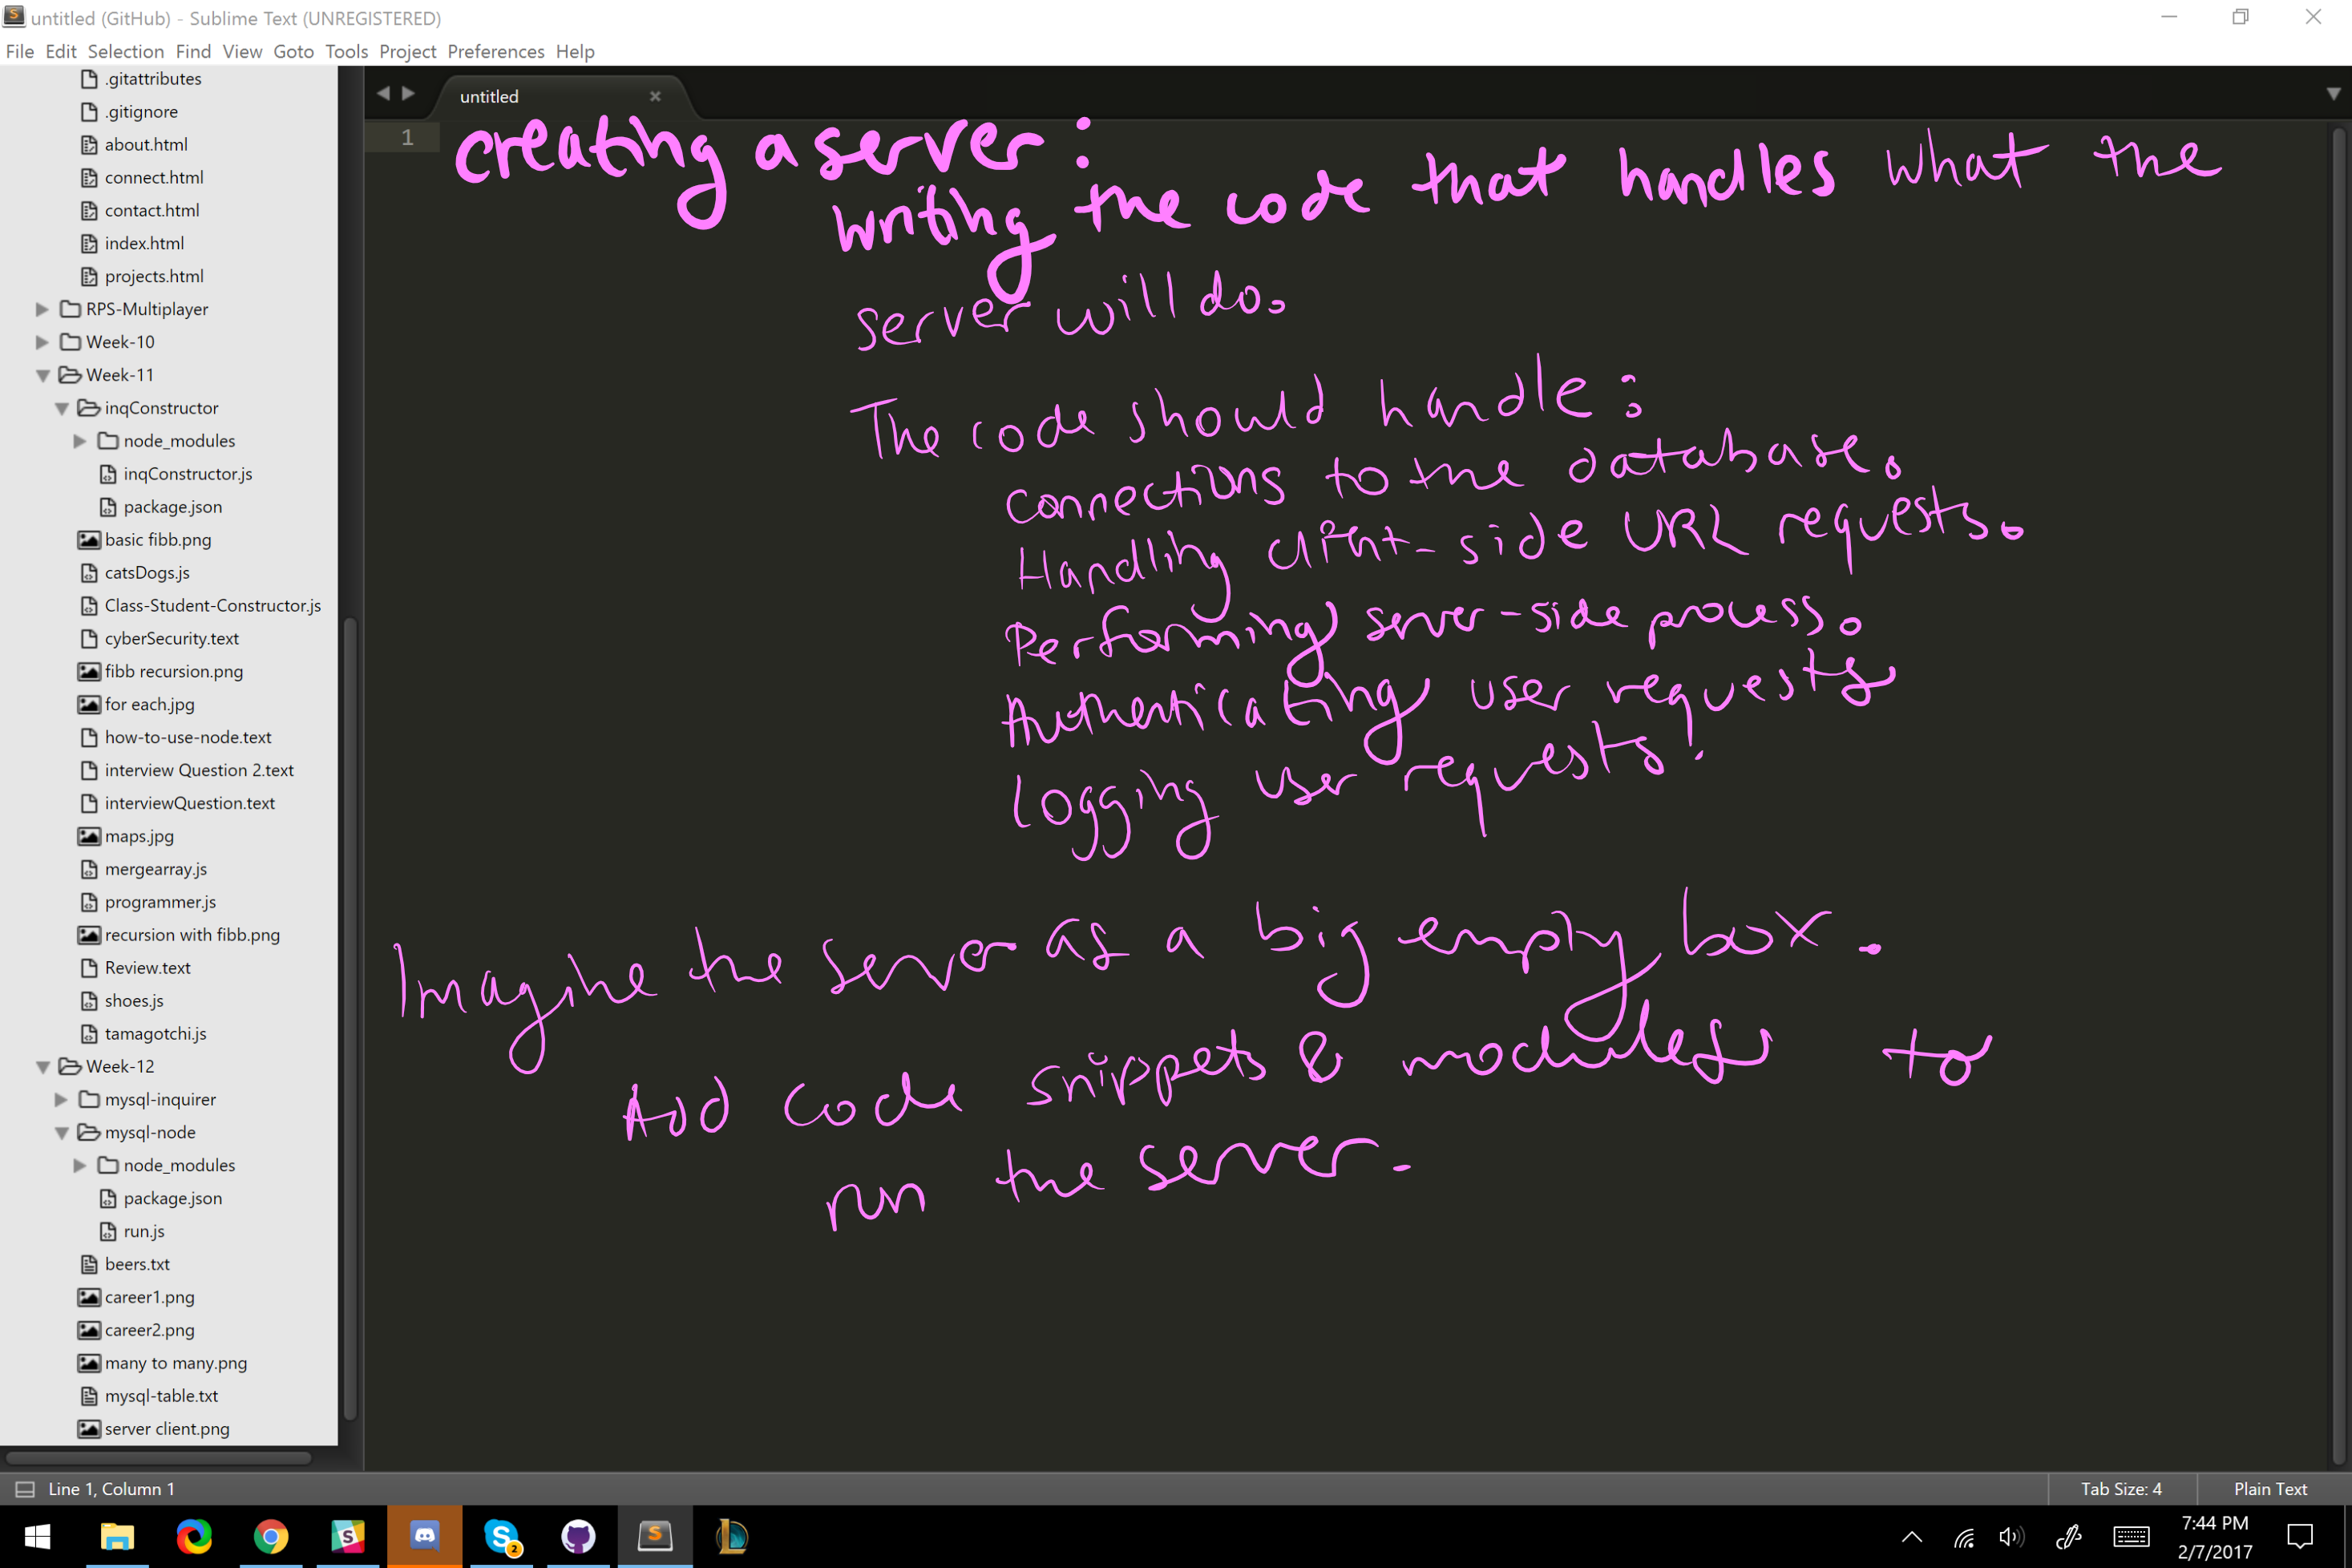 untitled (GitHub) - Sublime Text (UNREGISTERED)
File Edit Selection Find View Goto Tools Project Preferences Help
.gitattributes
.gitignore
about.html
connect.html
contact.html
index.html
projects.html
RPS-Multiplayer
Week-10
Week-11
inqConstructor
node_modules
inqConstructor.js
package.json
basic fibb.png
catsDogs.js
Class-Student-Constructor.js
cyberSecurity.text
fibb recursion.png
for each.jpg
how-to-use-node.text
interview Question 2.text
interviewQuestion.text
maps.jpg
mergearray.js
programmer.js
recursion with fibb.png
Review.text
shoes.js
tamagotchi.js
Week-12
mysql-inquirer
mysql-node
node_modules
package.json
run.js
beers.txt
career1.png
career2.png
many to many.png
mysql-table.txt
server client.png
untitled
1
creating a server:
writing the code that handles what the
server will do.
The code should handle:
connections to the database.
Handling client-side URL requests.
Performing server-side process.
Authenticating user requests
Logging user requests!
Imagine the server as a big empty box.
Add code snippets & modules to
run the server.
Line 1, Column 1
Tab Size: 4
Plain Text
2
7:44 PM
2/7/2017